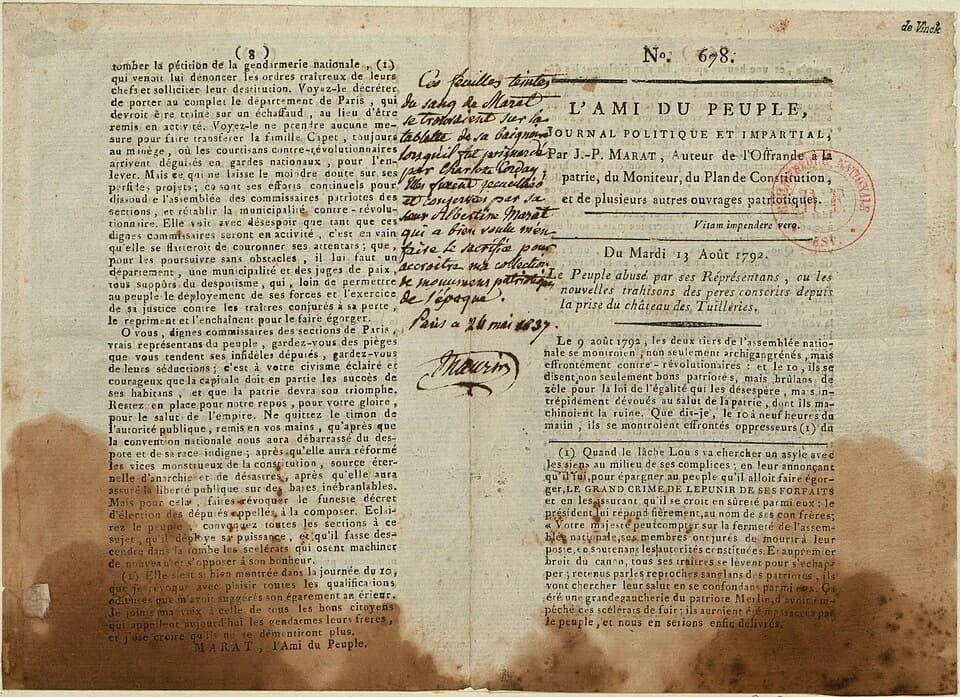 de Vinck
( 8 )
tomber la pétition de la gendarmerie nationale, (1)
qui venoit lui dénoncer les ordres traîtreux de leurs
chefs et solliciter leur destitution. Voyez-le décréter
de porter au complet le département de Paris, qui
devroit être traîné sur un échaffaud, au lieu d'être
remis en activité. Voyez-le ne prendre aucune me-
sure pour faire transférer la famille Capet, toujours
au minège, où les courtisans contre-révolutionnaires
arrivent déguisés en gardes nationaux, pour l'en-
lever. Mais ce qui ne laisse le moindre doute sur ses
perfides projets; ce sont ses efforts continuels pour
dissoudre l'assemblée des commissaires patriotes des
sections, et rétablir la municipalité contre-révolu-
tionnaire. Elle voit avec désespoir que tant que ces
dignes commissaires seront en activité, c'est en vain
qu'elle se flatteroit de couronner ses attentats; que,
pour les poursuivre sans obstacles, il lui faut un
département, une municipalité et des juges de paix,
tous suppôts du despotisme, qui, loin de permettre
au peuple le déployement de ses forces et l'exercice
de sa justice contre les traîtres conjurés à sa perte,
le repriment et l'enchaînent pour le faire égorger.
O vous, dignes commissaires des sections de Paris,
vrais représentans du peuple, gardez-vous des pièges
que vous tendent ses infidèles députés, gardez-vous
de leurs séductions; c'est à votre civisme éclairé et
courageux que la capitale doit en partie les succès de
ses habitans, et que la patrie devra son triomphe.
Restez en place pour notre repos, pour votre gloire,
pour le salut de l'empire. Ne quittez le timon de
l'autorité publique, remis en vos mains, qu'après que
la convention nationale nous aura débarrassé du des-
pote et de sa race indigne; après qu'elle aura réformé
les vices monstrueux de la constitution, source éter-
nelle d'anarchie et de désastres, après qu'elle aura
assuré la liberté publique sur des bases inébranlables.
Mais pour cela, faites révoquer le funeste décret
d'élection des députés appellés à la composer. Eclai-
rez le peuple, convoquez toutes les sections à ce
sujet, qu'il déploye sa puissance, et qu'il fasse des-
cendre dans la tombe les scélérats qui osent machiner
de nouveau et s'opposer à son bonheur.
(1) Elle s'est si bien montrée dans la journée du 10,
que je révoque avec plaisir toutes les qualifications
odieuses que m'avoit suggérés son égarement antérieur.
Je joints ma voix à celle de tous les bons citoyens
qui appellent aujourd'hui les gendarmes leurs frères,
et j'ose croire qu'ils ne se démentiront plus.
MARAT, l'Ami du Peuple.
Ces feuilles teintes
du sang de Marat
se trouvaient sur la
tablette de sa baignoire
lorsqu'il fut poignardé
par Charlotte Corday;
Elles furent recueillies
et conservées par sa
sœur Albertine Marat
qui a bien voulu m'en
faire le sacrifice pour
accroître ma collection
de monumens patriotiques
de l'époque.
Paris ce 26 mai 1837.
Maurin
N°. 678.
L'AMI DU PEUPLE,
JOURNAL POLITIQUE ET IMPARTIAL,
Par J.-P. MARAT, Auteur de l'Offrande à la
patrie, du Moniteur, du Plan de Constitution,
et de plusieurs autres ouvrages patriotiques.
Vitam impendere vero.
EST.
Du Mardi 13 Août 1792.
Le Peuple abusé par ses Réprésentans, ou les
nouvelles trahisons des peres conscrits depuis
la prise du château des Tuilleries.
Le 9 août 1792, les deux tiers de l'assemblée natio-
nale se montroient, non seulement archigangrénés, mais
effrontément contre-révolutionnaires: et le 10, ils se
disent, non seulement bons patriotes, mais brûlans de
zèle pour la loi de l'égalité qui les désespère, mais in-
trépidement dévoués au salut de la patrie, dont ils ma-
chinoient la ruine. Que dis-je, le 10 à neuf heures du
matin, ils se montroient effrontés oppresseurs (1) du
(1) Quand le lâche Louis va chercher un asyle avec
les siens au milieu de ses complices; en leur annonçant
qu'il fui, pour épargner au peuple qu'il alloit faire égor-
ger, LE GRAND CRIME DE LE PUNIR DE SES FORFAITS
en les assurant, qu'il se croit en sûreté parmi eux: le
président lui répond fièrement, au nom de ses confrères;
« Votre majesté peut compter sur la fermeté de l'assem-
blée nationale, ses membres ont jurés de mourir à leur
poste, en soutenant les autorités constituées. Et au premier
bruit du canon, tous ses traîtres se lèvent pour s'échap-
per; retenus par les reproches sanglans des patriotes, ils
vont chercher leur salut en se confondant parmi eux. Ca
été une grande gaucherie du patriote Merlin, d'avoir em-
pêché ces scélérats de fuir; ils auroient été massacrés par
le peuple, et nous en serions enfin délivrés.